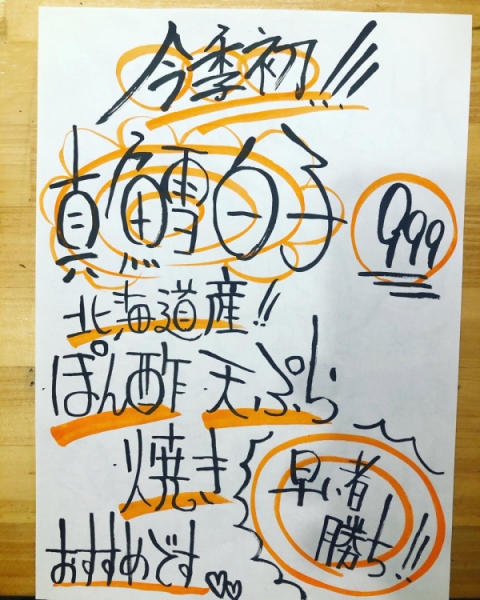 今季初!!!
真鱈白子 999
北海道産!!
ぽん酢 天ぷら
焼き
おすすめです
早い者
勝ち!!